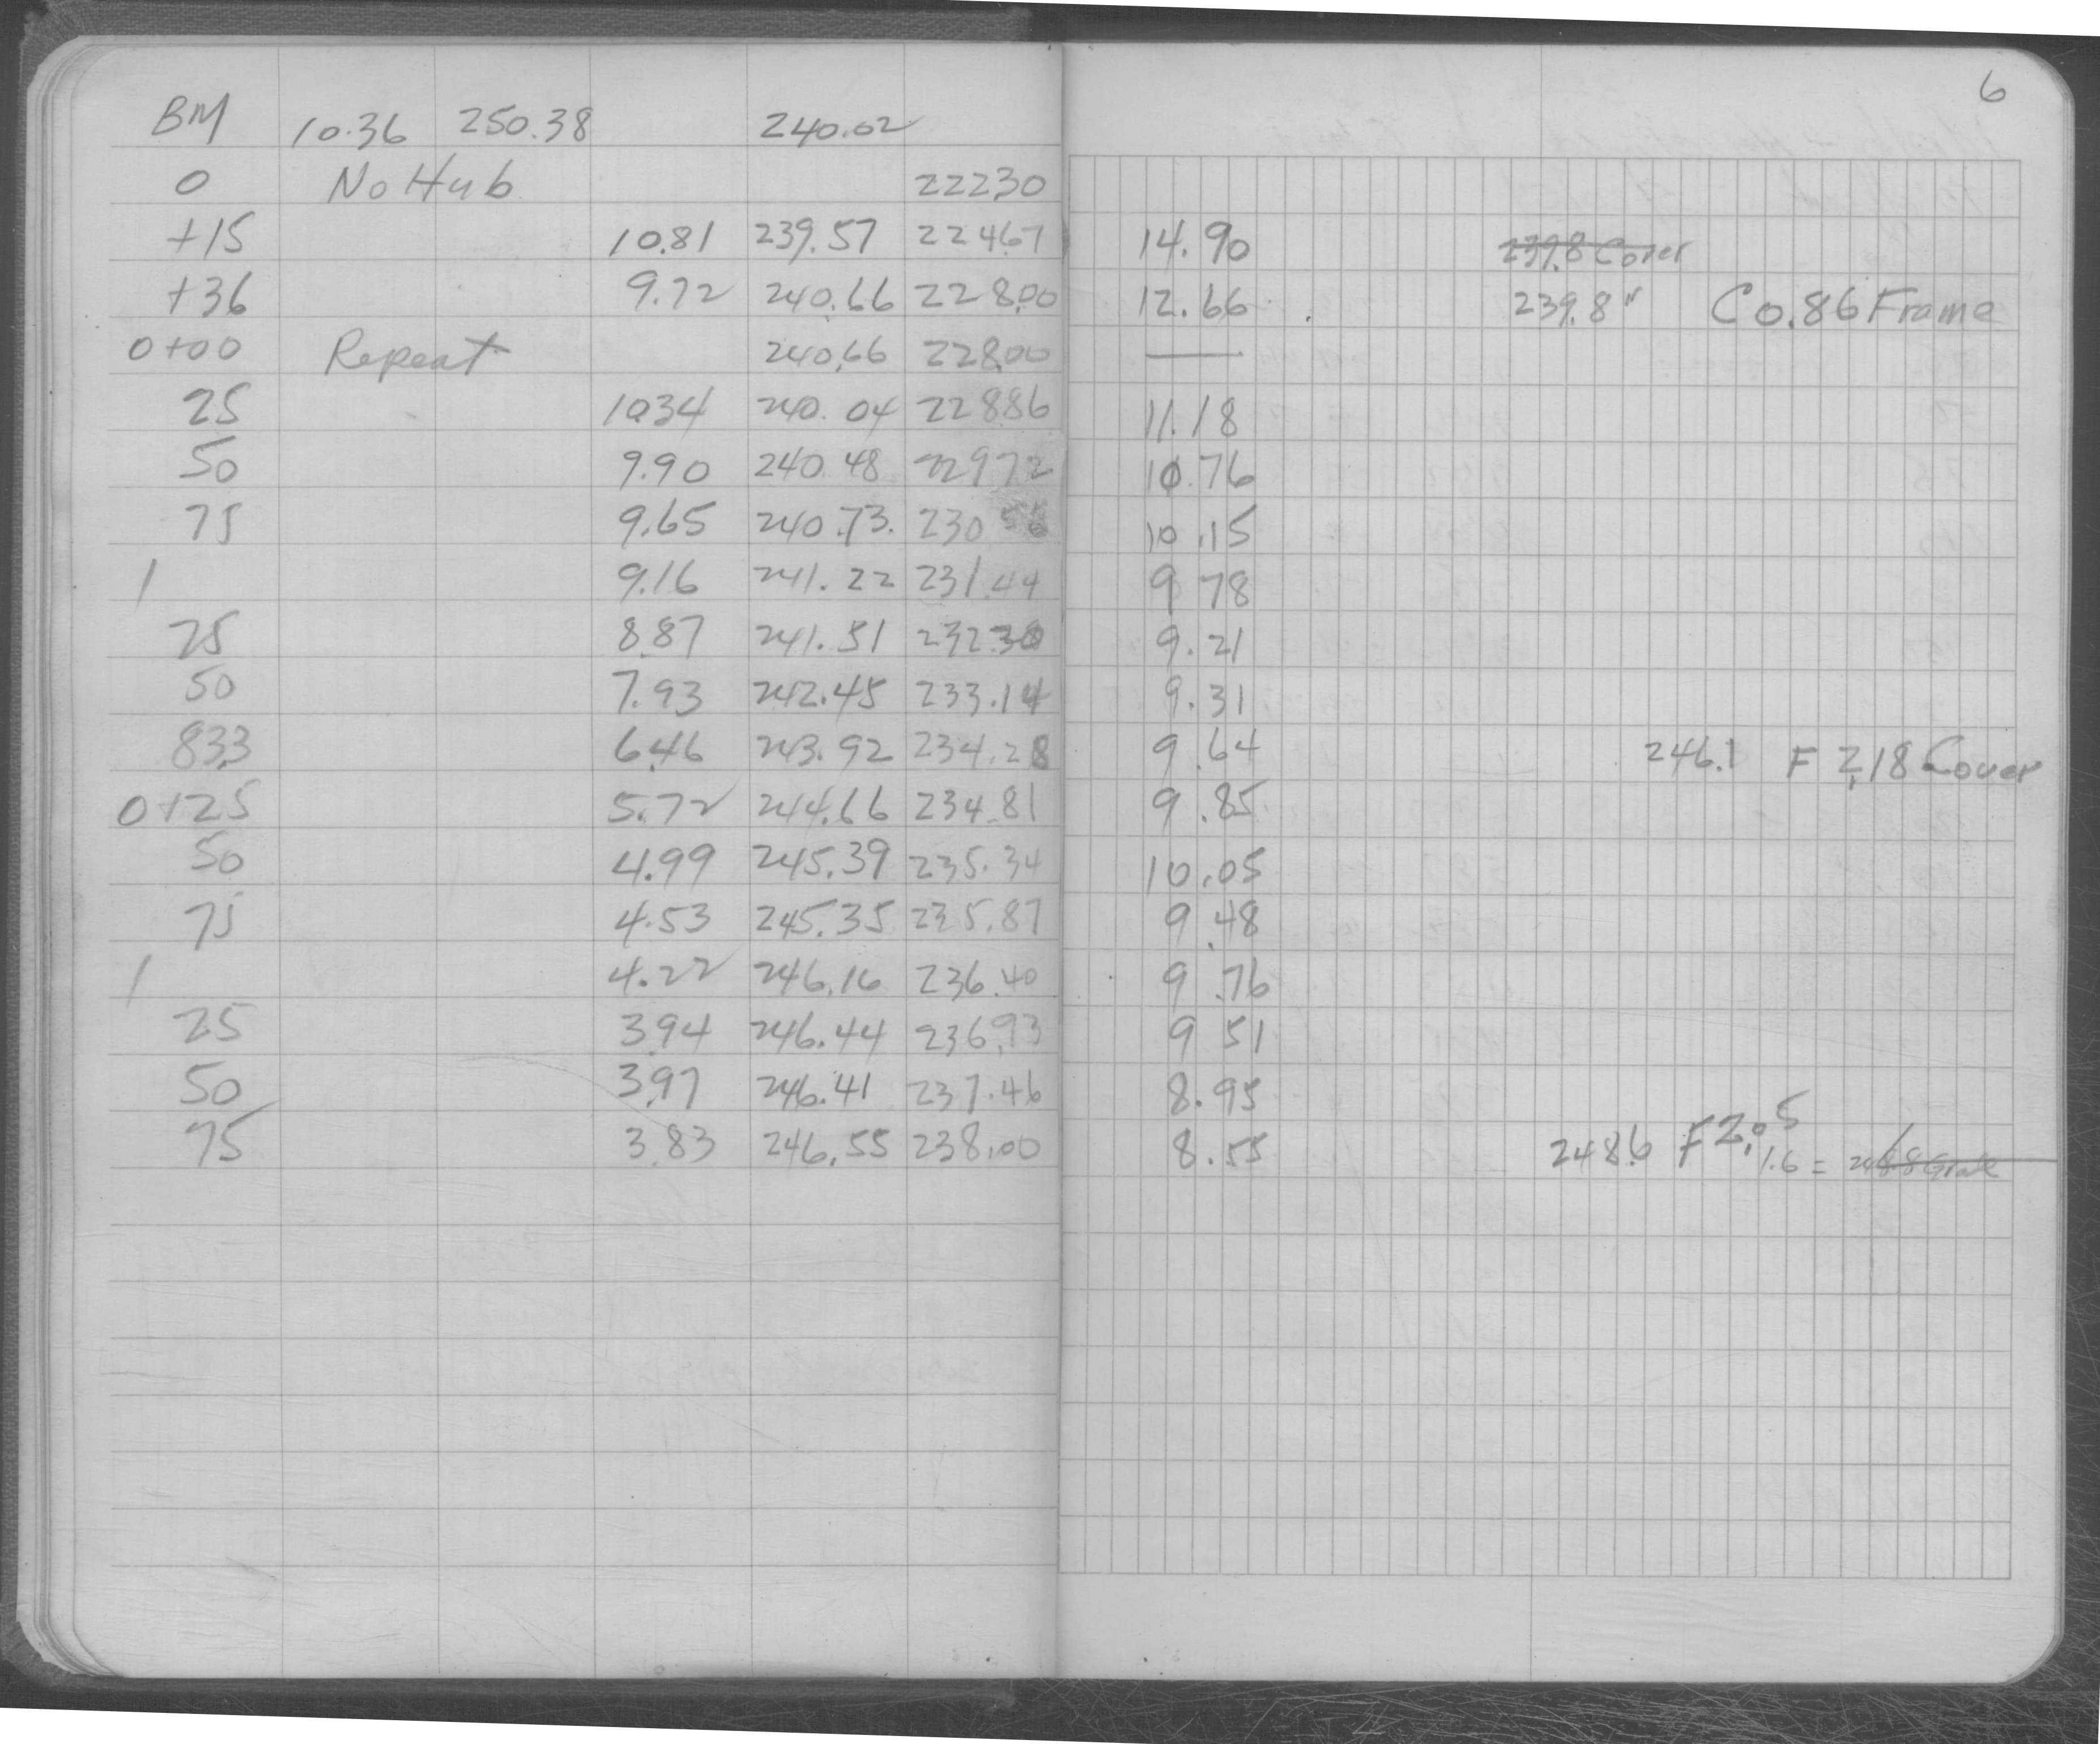 6
BM 10.36 250.38 240.02
0 No Hub 222.30
+15 10.81 239.57 224.67 14.90 239.8 Cover
+36 9.72 240.66 228.00 12.66 239.8 " C 0.86 Frame
0+00 Repeat 240.66 228.00 —
25 10.34 240.04 228.86 11.18
50 9.90 240.48 229.72 10.76
75 9.65 240.73 230.58 10.15
1 9.16 241.22 231.44 9.78
25 8.87 241.51 232.30 9.21
50 7.93 242.45 233.14 9.31
83.3 6.46 243.92 234.28 9.64 246.1 F 2.18 Cover
0+25 5.72 244.66 234.81 9.85
50 4.99 245.39 235.34 10.05
75 4.53 245.35 235.87 9.48
1 4.22 246.16 236.40 9.76
25 3.94 246.44 236.93 9 51
50 3.97 246.41 237.46 8.95
75 3.83 246.55 238.00 8.55 248.6 F 2.05
1.6 = Grate